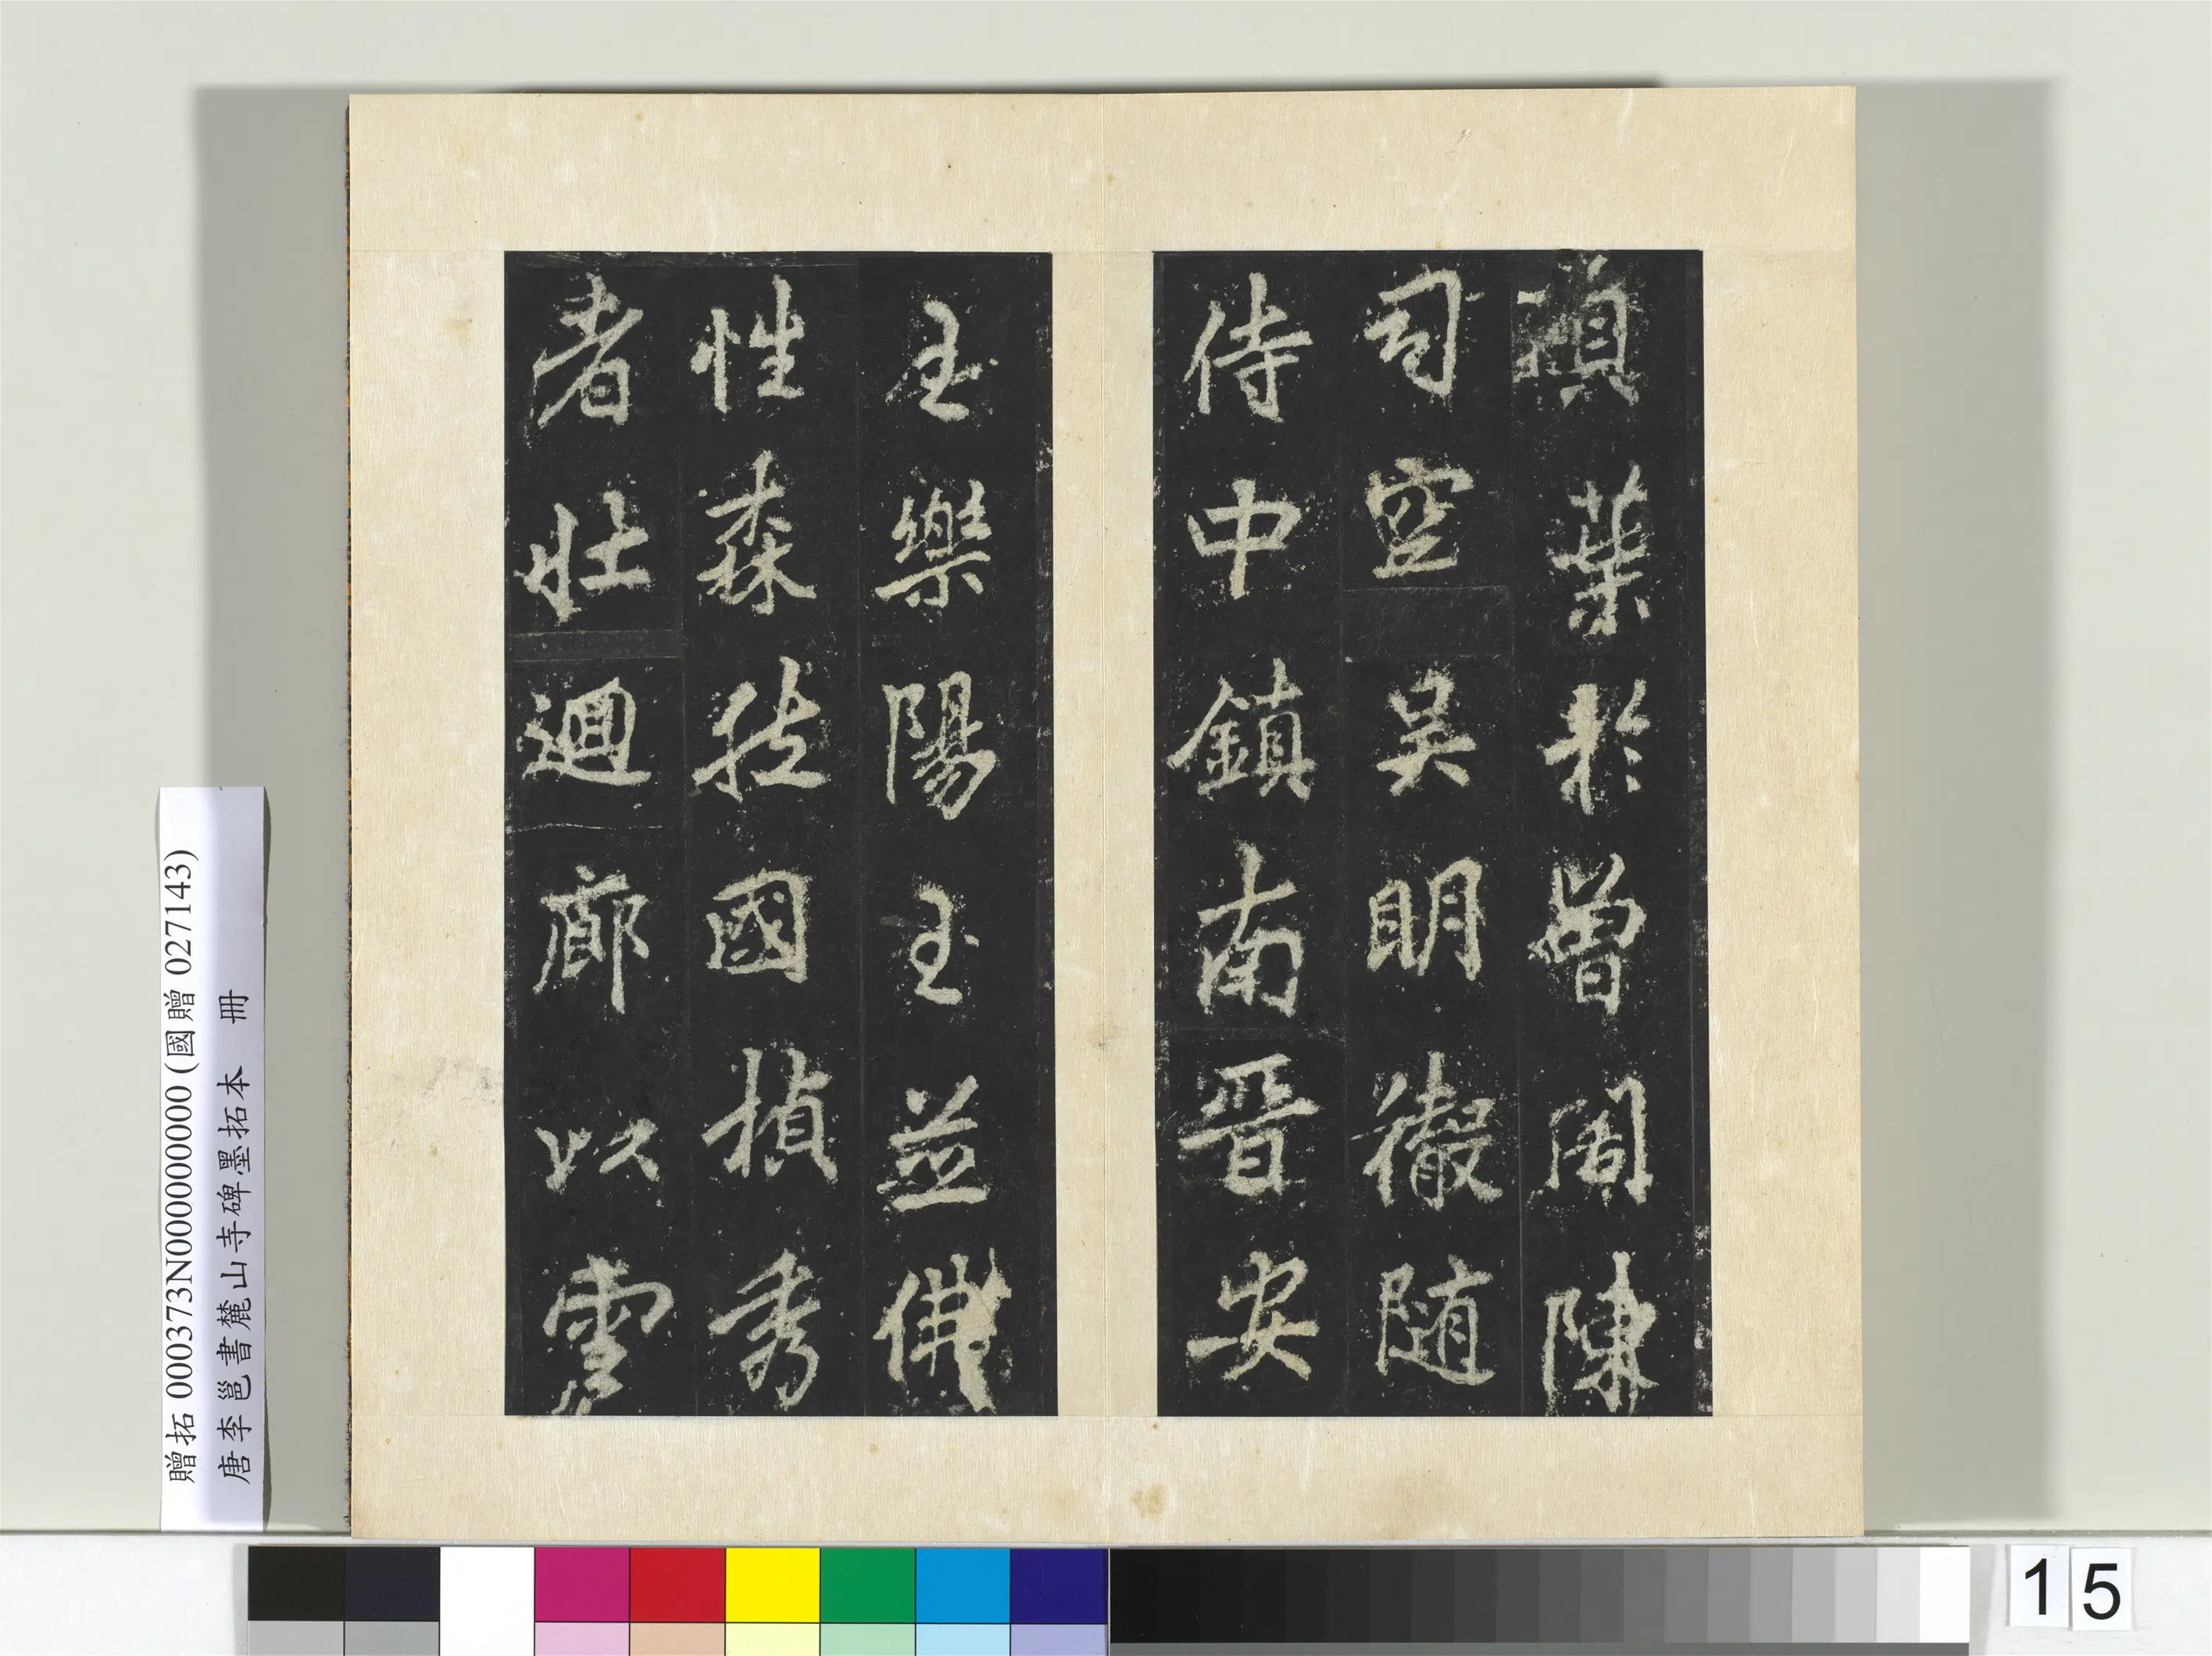 損葉於曾閣陳
司空吳明徹隨
侍中鎮南晉安
王樂陽王並佛
性森然國楨秀
者壯迴廊以雲
贈拓 000373N000000000 (國贈 027143)
唐李邕書麓山寺碑墨拓本 冊
15